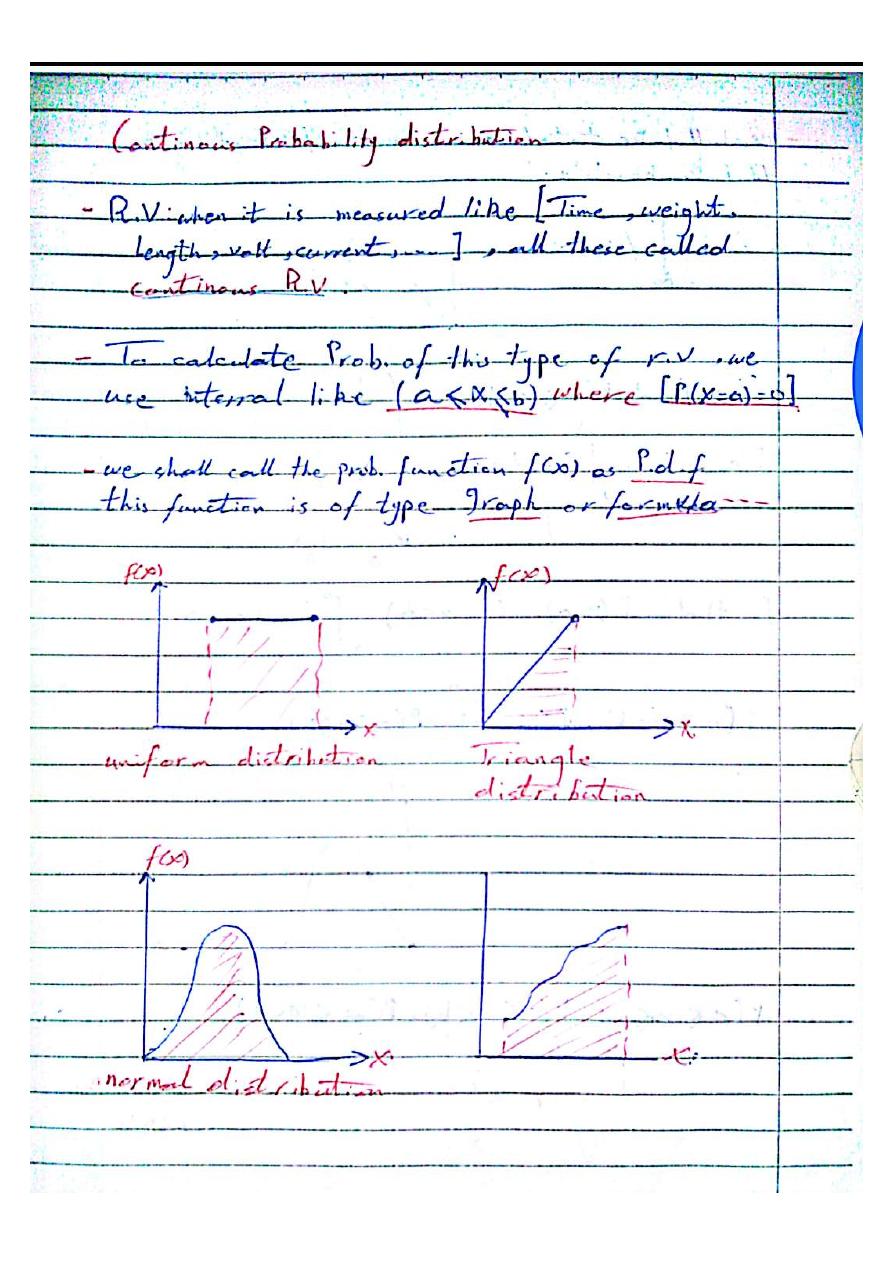 Continous Probability distribution
- R.V: when it is measured like [Time, weight,
Length, volt, current, ....], all these called
continous R.V.
- To calculate Prob. of this type of r.v. we
use interral like (a < X < b) where [P(X=a)=0]
- we shall call the prob. function f(x) as P.d.f.
this function is of type graph or formula ---
f(x)
f(x)
x
x
uniform distribution
Triangle
distribution
f(x)
x
x
normal distribution